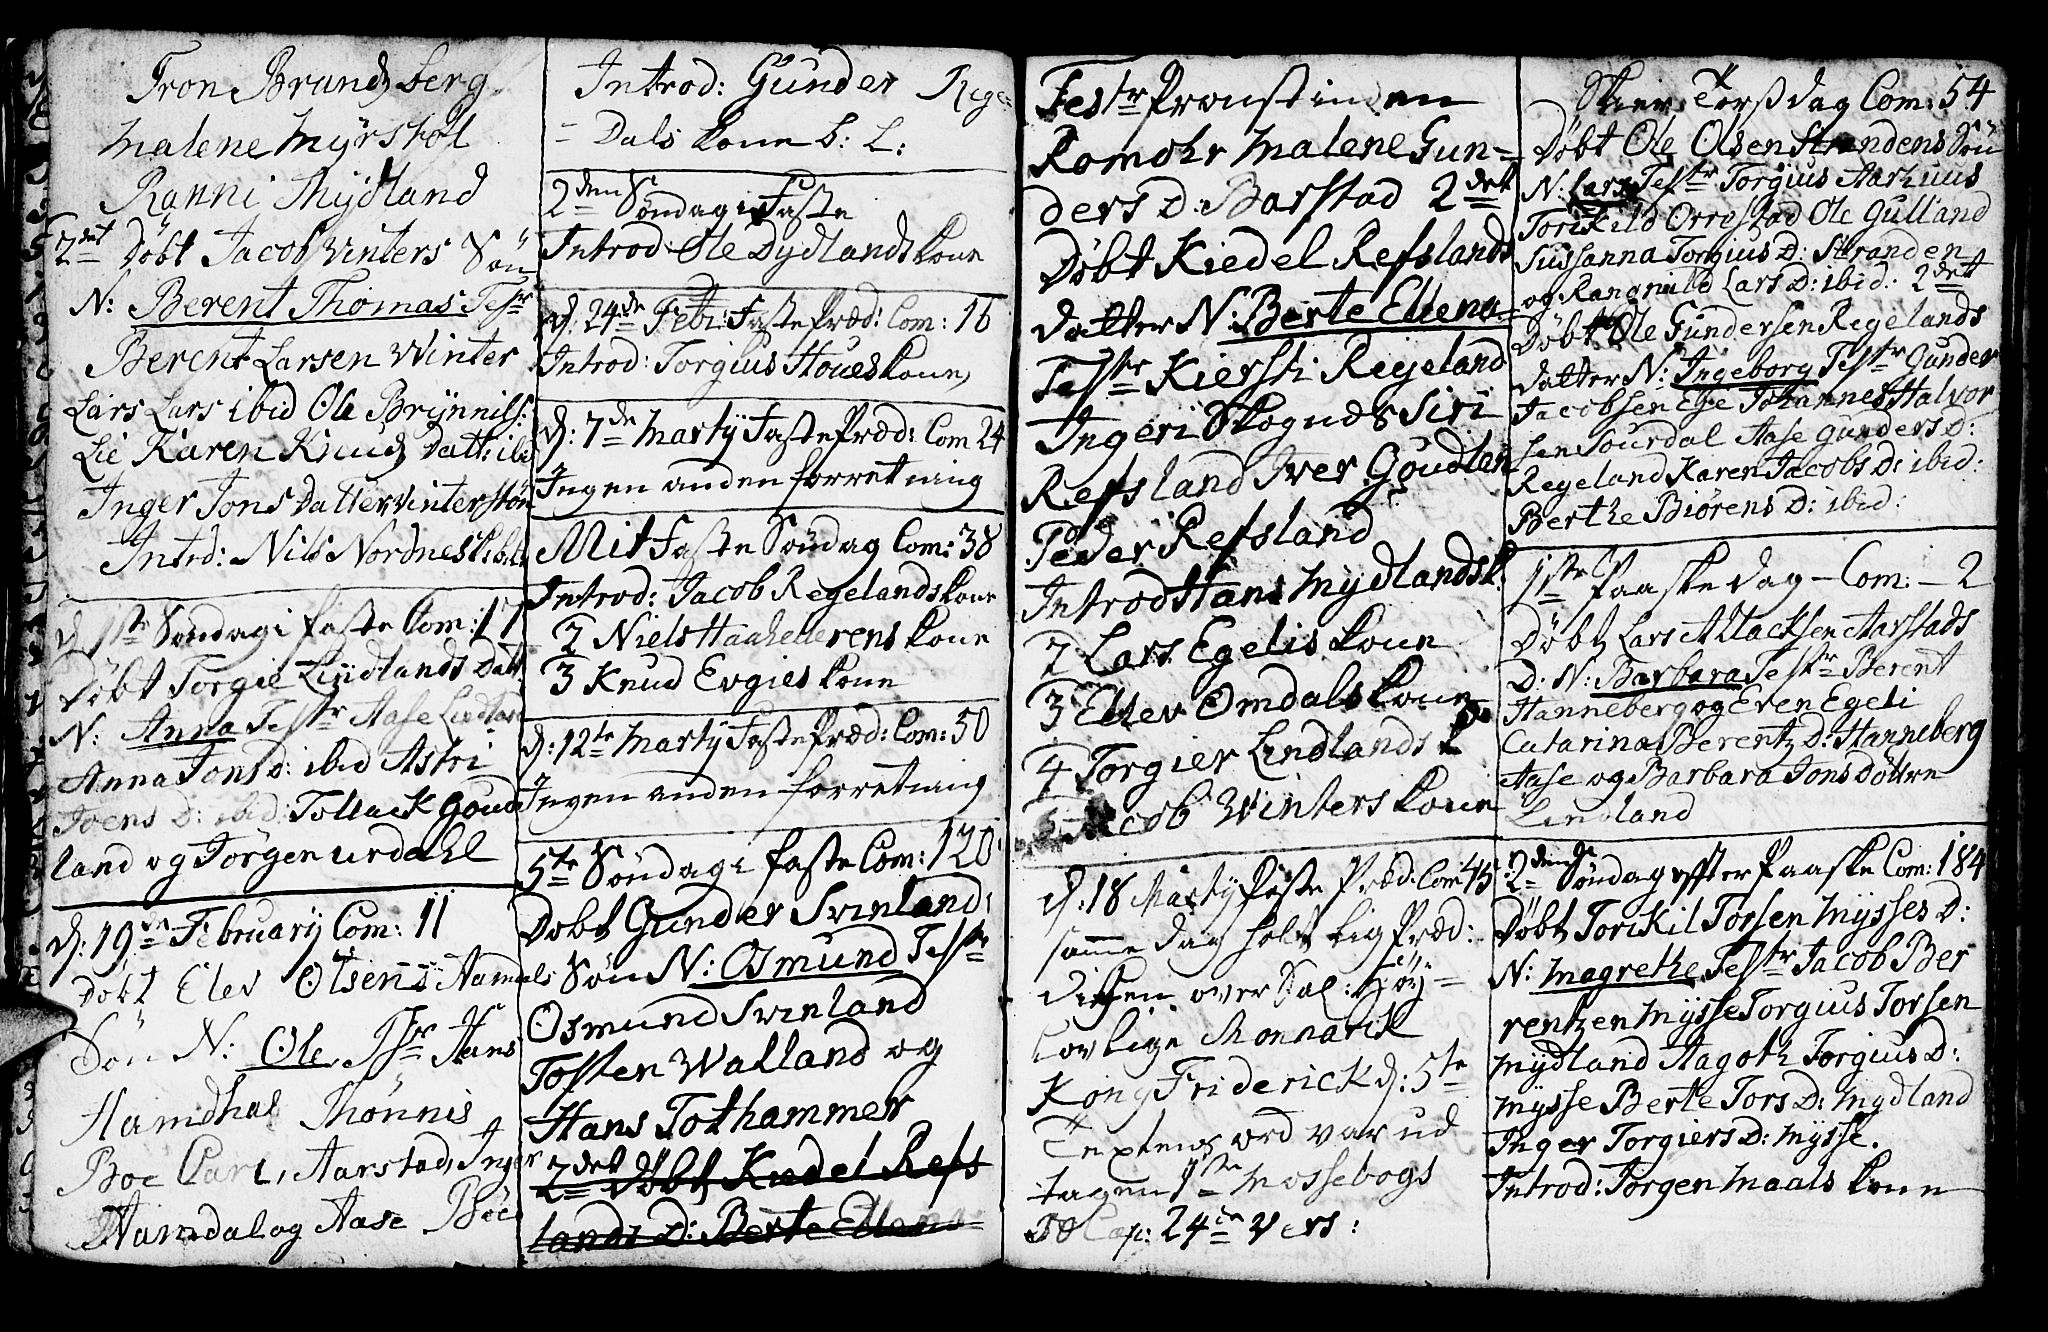 Tron Brundsberg
Malene Myrstøl
Ranni Mydland
2det Døbt Jacob Winters Søn
N: Berent Thomas. Testr
Berent Larsen Winter
Lars Lars ibid Ole Brynnils:
Lie Karen Knuds Datt: ibid
Inger Jons Datter Vinterstøn
Introd: Nils Nordnes
d: 1ste Søndag i faste Com: 17
Døbt Torgie Lindlands Datt
N: Anna Testr Aase Lindland
Anna Jons D: ibid Astri
Joens D: ibid Tollack Goud
land og Jörgen Urdahl
d: 19de February Com: 11
Døbt Elev Olsens Aamdals
Søn N: Ole Testr Hans
Hamdhal Thönnis
Boe Carl Aarstad, Inger
Hamdal og Aase Böe
Introd: Gunder Rege=
= Dals kone b: L:
2den Søndag i Faste
Introd: Ole Dydlands kone
d: 24de Febr: Faste Præd: Com: 16
Introd: Torgius Houes kone
d: 7de Marty Faste Præd: Com 24
Ingen anden forretning
Mit Faste Søndag Com: 38
Introd: Jacob Regelands kone
2 Niels Haahellerens kone
3 Knud Evgies kone
d: 12te Marty Faste Præd: Com: 50
Ingen anden forretning
5te Søndag i faste Com: 120
Døbt Gunder Svinland:
Søn N: Osmund Teste
Osmund Svinland
Tosten Walland og
Hans Tothammer
2det Døbt Kedel Refs
lands D: Berte Ellena
Testr Proustinden
Romohr Malene Gun=
ders D: Barstad 2det
Døbt Kiedel Refslands
datter N: Berte Ellena
Teste Kiersti Regeland
Ingeri Skognds Siri
Refsland Iver Goudlan
Peder Refsland
Introd Hans Mydlands k.
2 Lars Egelis kone
3 Ellev Omdals kone
4 Torgier Lindlands k
5 Jacob Winters kone
d: 18 Marty faste Præd: Com 45
samme dag holt Lig Præd:
dicken over Sal: Höy=
Lovlige Monnarck
Kong Friderick d: 5te
Textens ord var ud
tagen 1ste Mossebogs
50 Cap: 24de Vers:
Skier Torsdag Com: 54
Døbt Ole Olsen Strandens Søn
N: Lars Testr Torgius Aarhuus
Torkild Orrestad Ole Gulland
Sussanna Torgius D: Stranden
og Rangnild Lars D: ibid: 2det
Døbt Ole Gundersen Regelands
datter N: Ingeborg Testr Gunder
Jacobsen Else Johannes Halvor
sen Sourdal Aase Gunders D:
Regeland Karen Jacobs D: ibid:
Berthe Biörens D: ibid:
1ste Paaske dag - Com: - 2
Døbt Lars Atlacksen Aarstads
D: N: Barbara Testr Berent
Hanneberg og Even Egeli
Catarina Berentz D: Hanneberg
Aase og Barbara Jons Döttre
Lindland
2den Søndag effter Paaske Com: 184
Døbt Torkil Torsen Mysses D:
N: Magrethe Testr Jacob Ber
rentzen Mysse Torgius Torsen
Mydland Aagoth Torgius D:
Mysse Berte Tors D: Mydland
Inger Torgiers D: Mysse.
Introd: Jörgen Maals kone